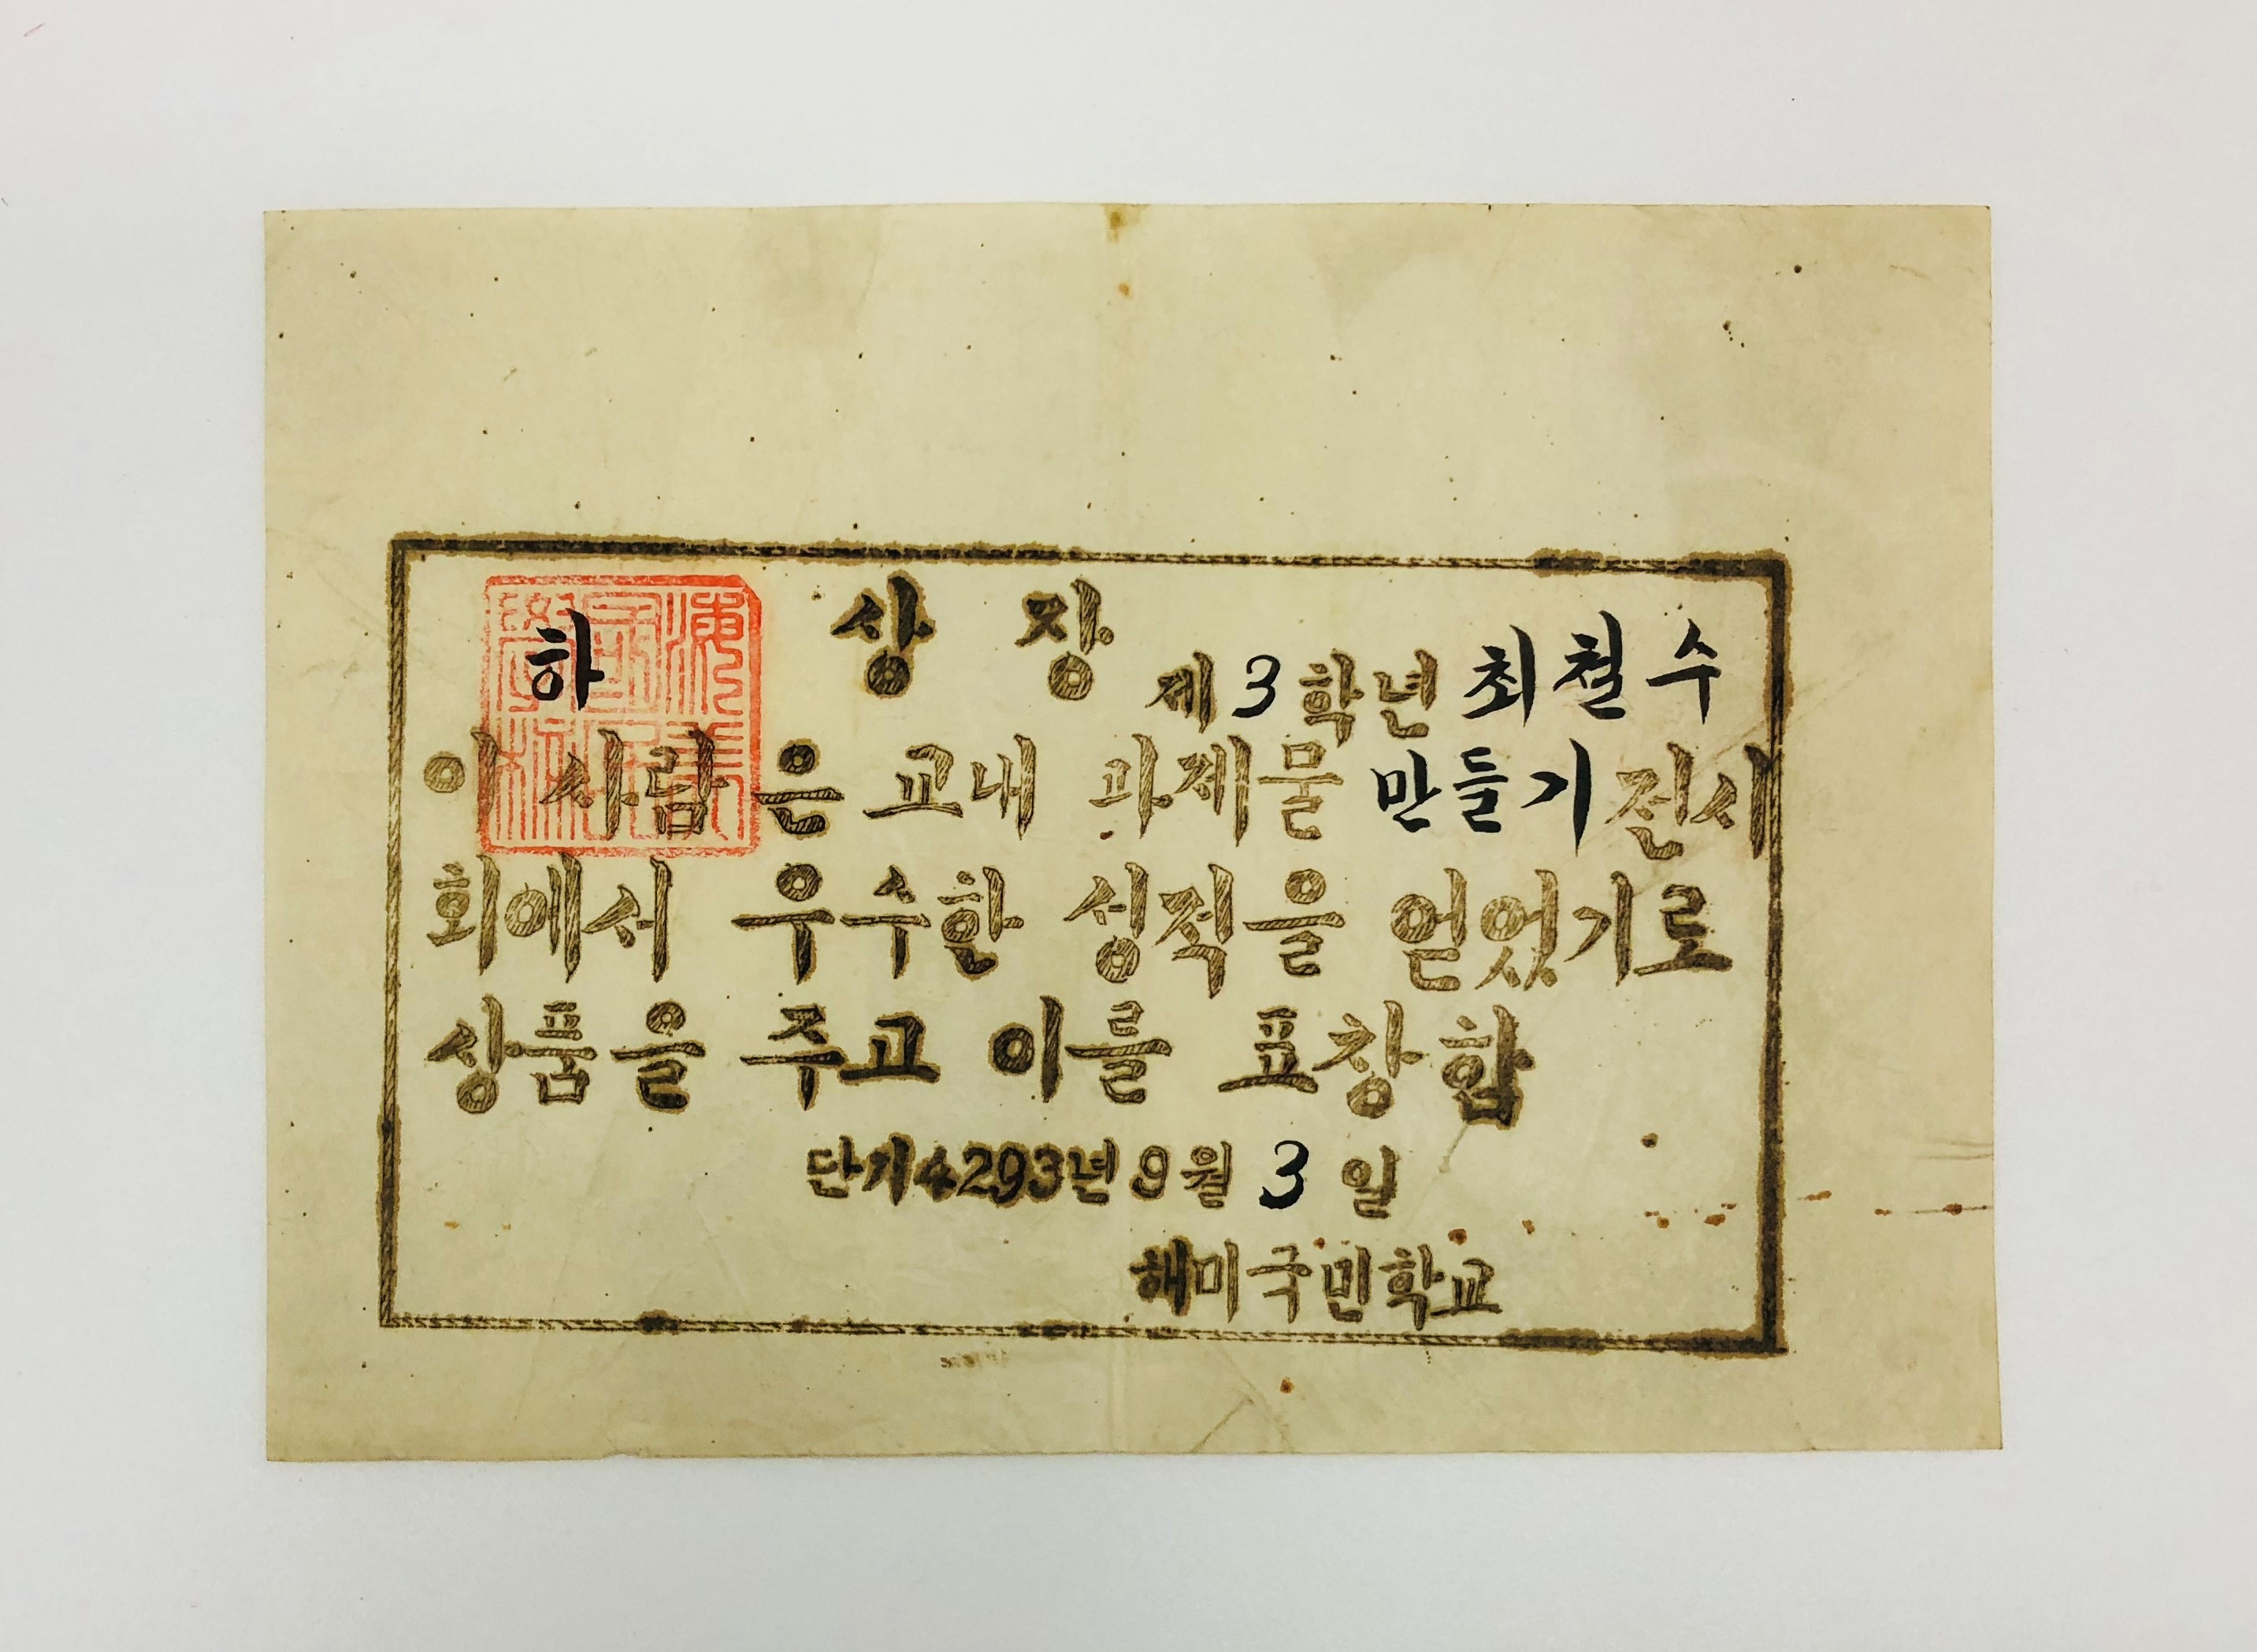 상장
하
제3학년 최철수
이 사람은 교내 과제물 만들기 전시
회에서 우수한 성적을 얻었기로
상품을 주고 이를 표창함
단기4293년 9월 3일
해미국민학교